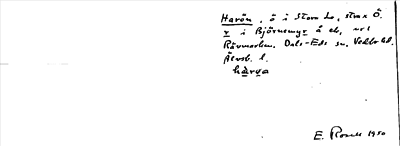 Harön, ö i Stora Le, strax Ö.
r i Björnemyr å eb, nr 1
Rävmarken. Dals-Eds sn, Vedbo hd.
Älvsb. l.
harya
E. Rosell 1950